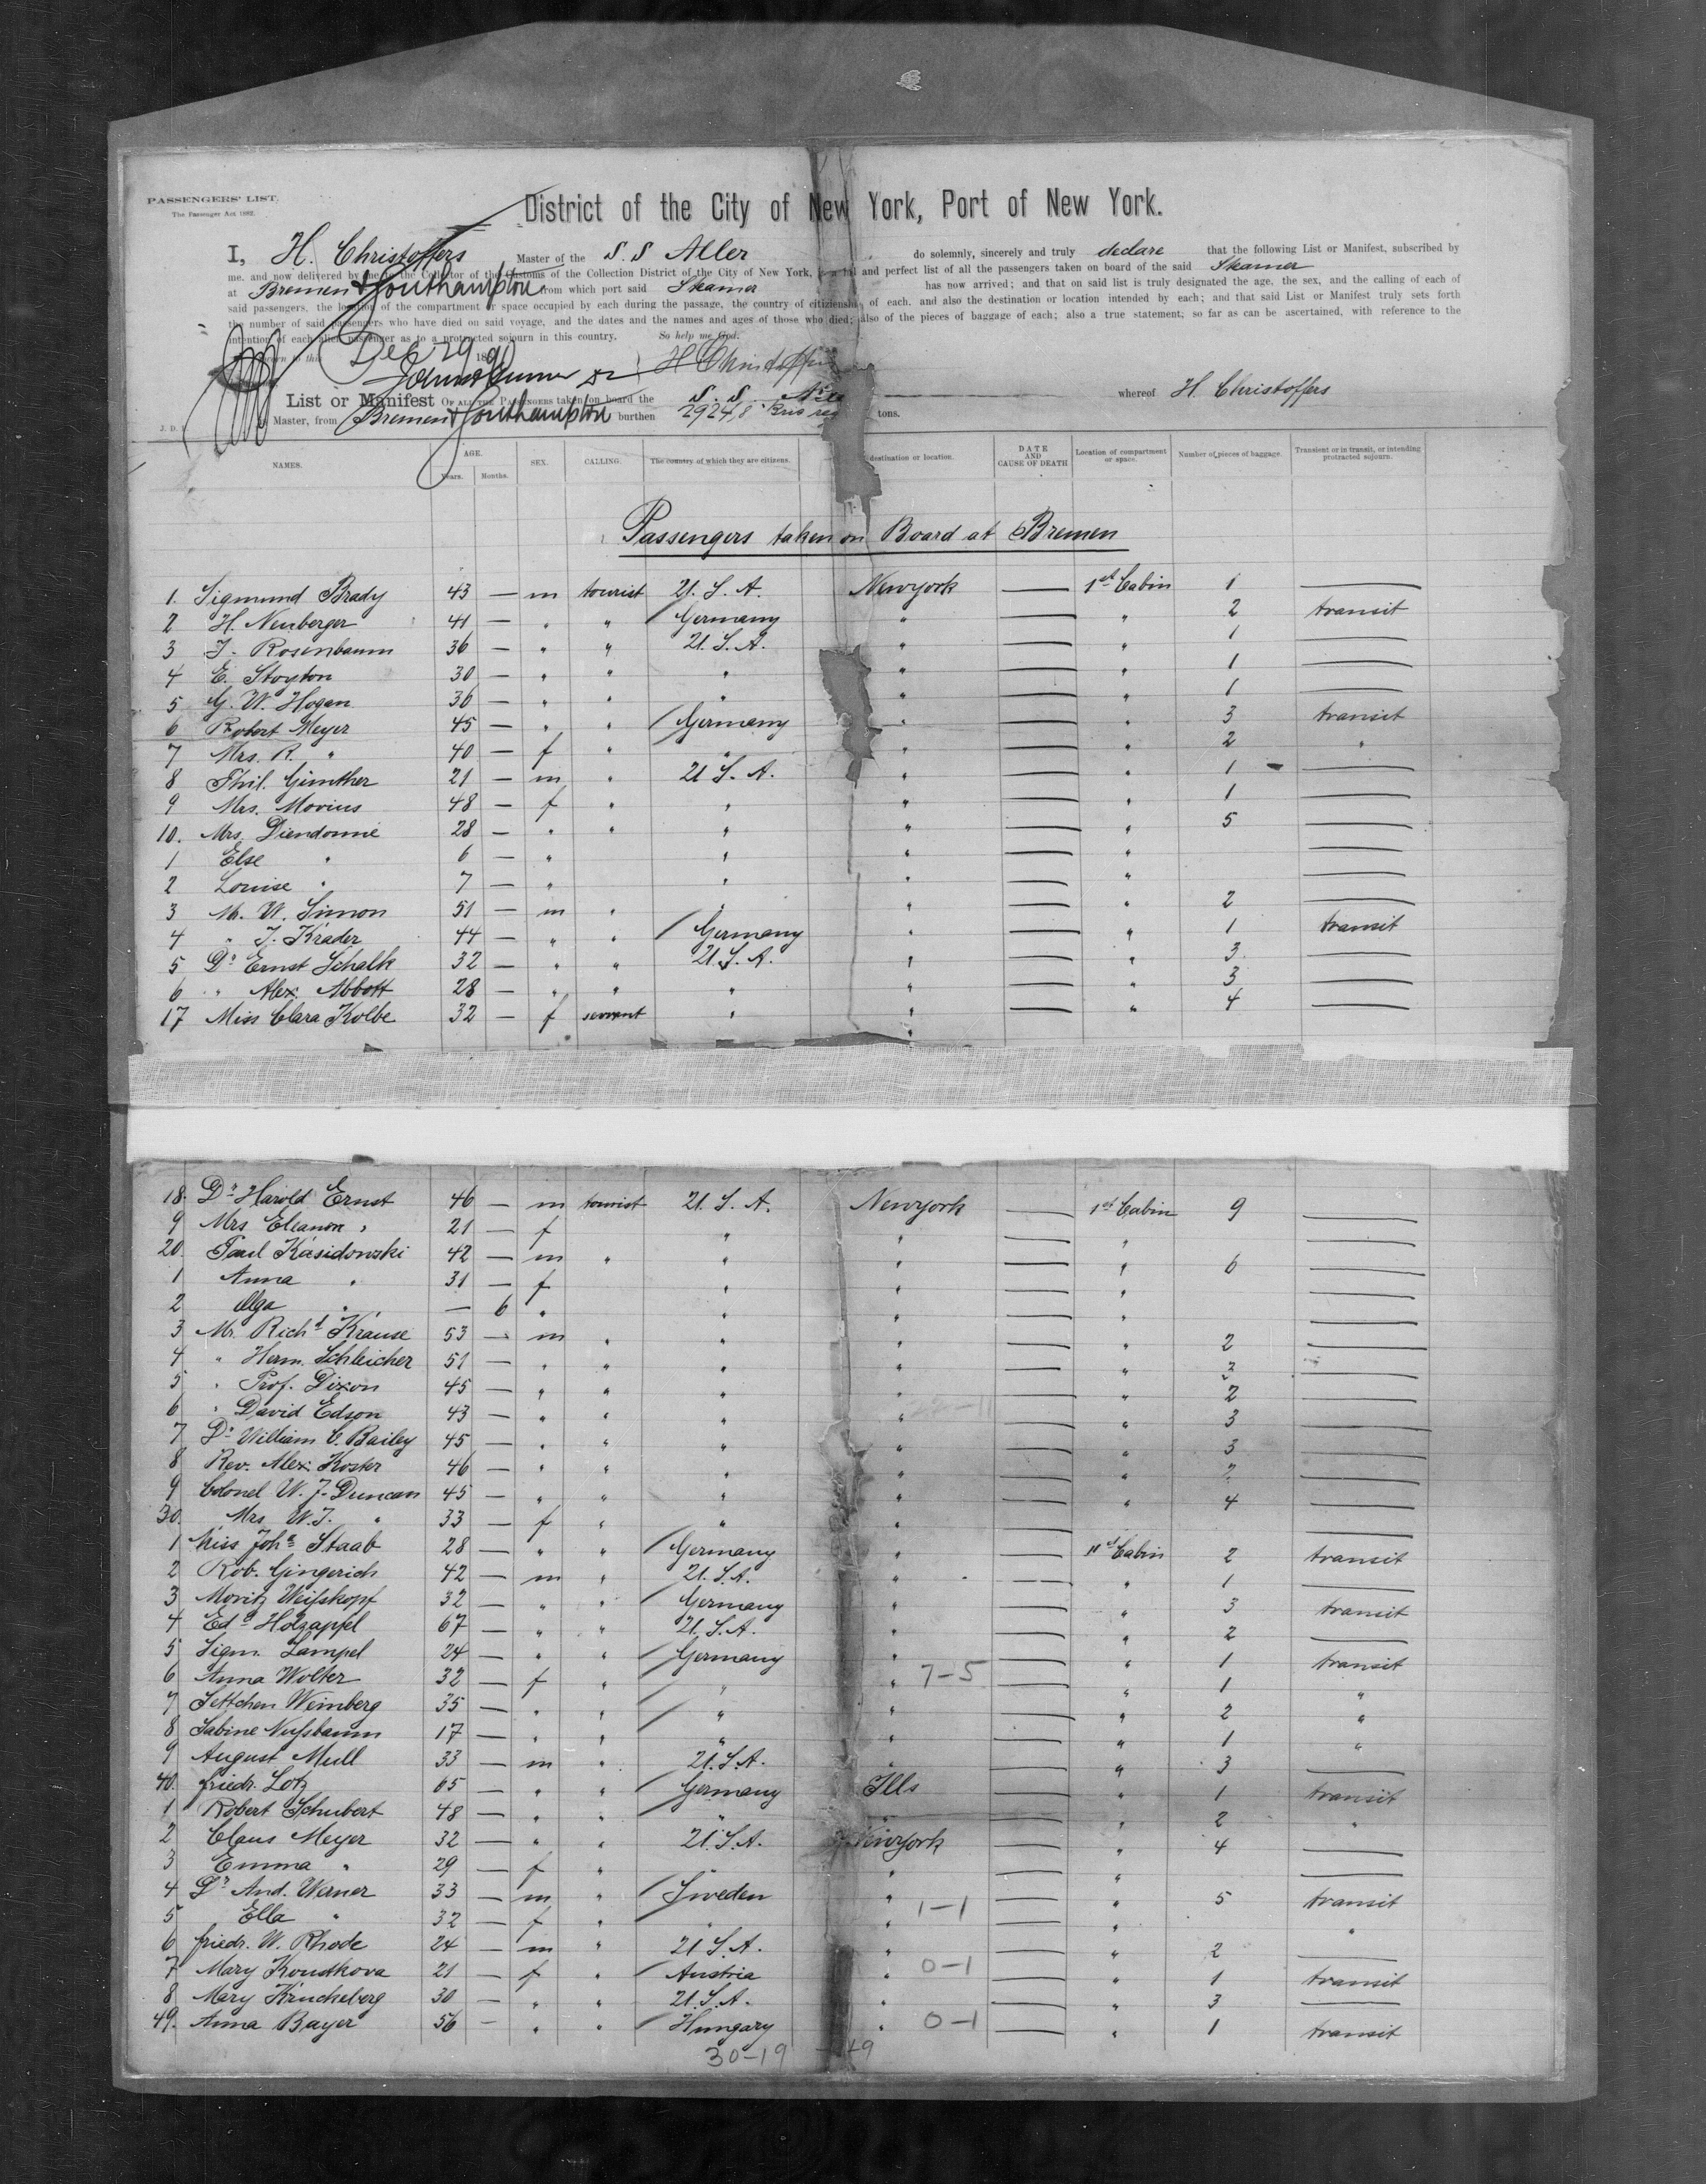 PASSENGERS' LIST.
The Passenger Act 1882.
District of the City of New York, Port of New York.
I, H. Christoffers Master of the S. S Aller do solemnly, sincerely and truly declare that the following List or Manifest, subscribed by
me. and now delivered by me to the Collector of the Customs of the Collection District of the City of New York, is a full and perfect list of all the passengers taken on board of the said Steamer
at Bremen & Southampton from which port said Steamer has now arrived; and that on said list is truly designated the age, the sex, and the calling of each of
said passengers, the location of the compartment or space occupied by each during the passage, the country of citizenship of each. and also the destination or location intended by each; and that said List or Manifest truly sets forth
the number of said passengers who have died on said voyage, and the dates and the names and ages of those who died; also of the pieces of baggage of each; also a true statement; so far as can be ascertained, with reference to the
intention of each alien passenger as to a protracted sojourn in this country. So help me God.
Sworn to this Dec 29 1890 H Christoffers
List or Manifest OF ALL THE PASSENGERS taken on board the S. S. Aller whereof H. Christoffers
J. D.
is Master, from Bremen & Southampton burthen 2924,8 tons.
NAMES. AGE. Years. Months. SEX. CALLING. The country of which they are citizens. destination or location. DATE AND CAUSE OF DEATH Location of compartment or space. Number of pieces of baggage. Transient or in transit, or intending protracted sojourn.
Passengers taken on Board at Bremen
1. Sigmund Brady 43 — m tourist U. S. A. Newyork — 1st Cabin 1 —
2 H. Neuberger 41 — " " Germany " — " 2 transit
3 J. Rosenbaum 36 — " " U. S. A. " — " 1 —
4 E. Stoyton 30 — " " " " — " 1 —
5 G. W. Hogan 36 — " " " " — " 1 —
6 Robert Meyer 45 — " " Germany " — " 3 transit
7 Mrs. R. " 40 — f " " " — " 2 "
8 Phil. Günther 21 — m " U. S. A. " — " 1 —
9 Mrs. Movius 48 — f " " " — " 1 —
10. Mrs. Diendonné 28 — " " " " — " 5 —
1 Else " 6 — " " " — " —
2 Louise " 7 — " " " — " —
3 Mr. W. Simon 51 — m " " " — " 2 —
4 " J. Krader 44 — " " Germany " — " 1 transit
5 Dr Ernst Schalk 32 — " " U. S. A. " — " 3 —
6 " Alex. Abbott 28 — " " " " — " 3 —
17 Miss Clara Kolbe 32 — f servant " " — " 4 —
18. Dr Harold Ernst 46 — m tourist U. S. A. Newyork — 1st Cabin 9 —
9 Mrs Eleanor " 21 — f " " — " —
20. Paul Kasidowski 42 — m " " " — " 6 —
1 Anna " 31 — f " " — " —
2 Olga " — 6 " " " — " —
3 Mr. Richd Krause 53 — m " " " — " 2 —
4 " Herm. Schleicher 51 — " " " " — " 2 —
5 " Prof. Dixon 45 — " " " " — " 2 —
6 " David Edson 43 — " " " " — " 3 —
7 Dr William C. Bailey 45 — " " " " — " 3 —
8 Rev. Alex. Koster 46 — " " " " — " 2 —
9 Colonel W. J. Duncan 45 — " " " " — " 4 —
30. Mrs W. J. " 33 — f " " " — —
1 Miss Joha Staab 28 — " " Germany " — IId Cabin 2 transit
2 Rob. Gingerich 42 — m " U. S. A. " — " 1 —
3 Moritz Weißkopf 32 — " " Germany " — " 3 transit
4 Edd Holzapfel 67 — " " U. S. A. " — " 2 —
5 Sigm. Lampel 24 — " " Germany " — " 1 transit
6 Anna Wolter 32 — f " " " 7-5 — " 1 "
7 Jettchen Weinberg 35 — " " " " — " 2 "
8 Sabine Nußbaum 17 — " " " " — " 1 "
9 August Mull 33 — m " U. S. A. " — " 3 —
40. Friedr. Lotz 65 — " " Germany Ills — " 1 transit
1 Robert Schubert 48 — " " " " — " 2 "
2 Claus Meyer 32 — " " U. S. A. Newyork — " 4 —
3 Emma " 29 — f " " " — " —
4 Dr And. Werner 33 — m " Sweden " 1-1 — " 5 transit
5 Ella " 32 — f " " " — " "
6 Friedr. W. Rhode 24 — m " U. S. A. " — " 2 —
7 Mary Koudkova 21 — f " Austria " 0-1 — " 1 transit
8 Mary Kruckeberg 30 — " " U. S. A. " — " 3 —
49. Anna Bayer 56 — " " Hungary " 0-1 — " 1 transit
30-19 -49